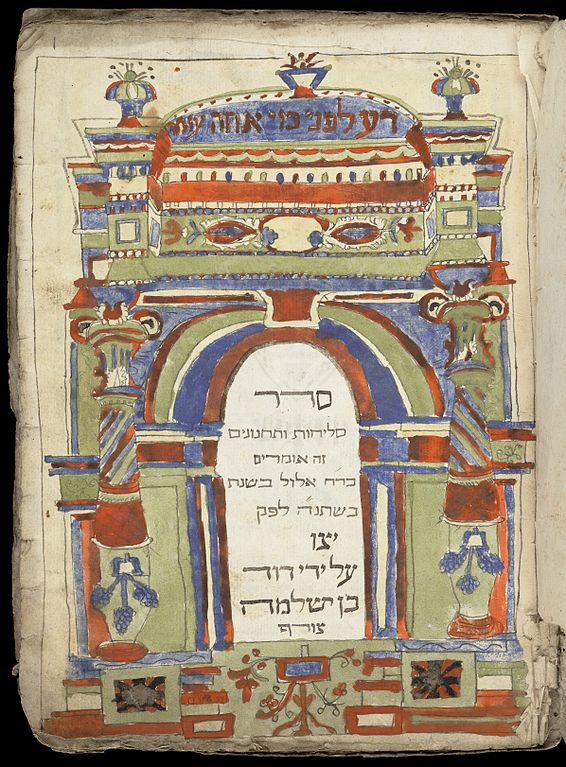 דע לפני מי אתה עומד
סדר
סליחות ותחנונים
זה אומרים
בר״ח אלול בשנת
לפק
יצו
על ידי דוד
בן שלמה
צורף